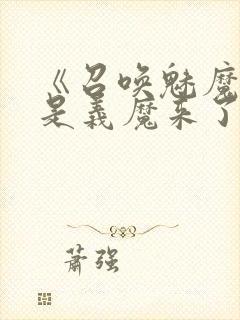 《召唤魅魔
是义魔来了
萧强